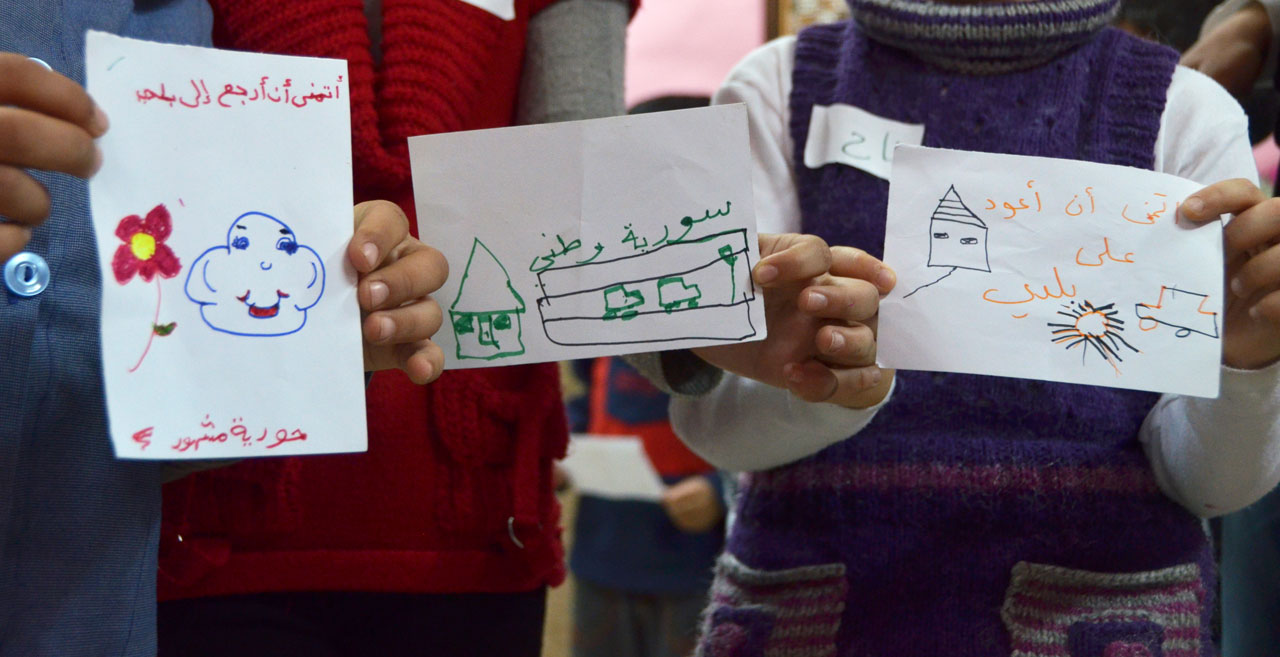 أتمنى أن أرجع إلى بلدي
حورية مشهور
سورية وطني
اتمنى أن أعود
على
بلدي